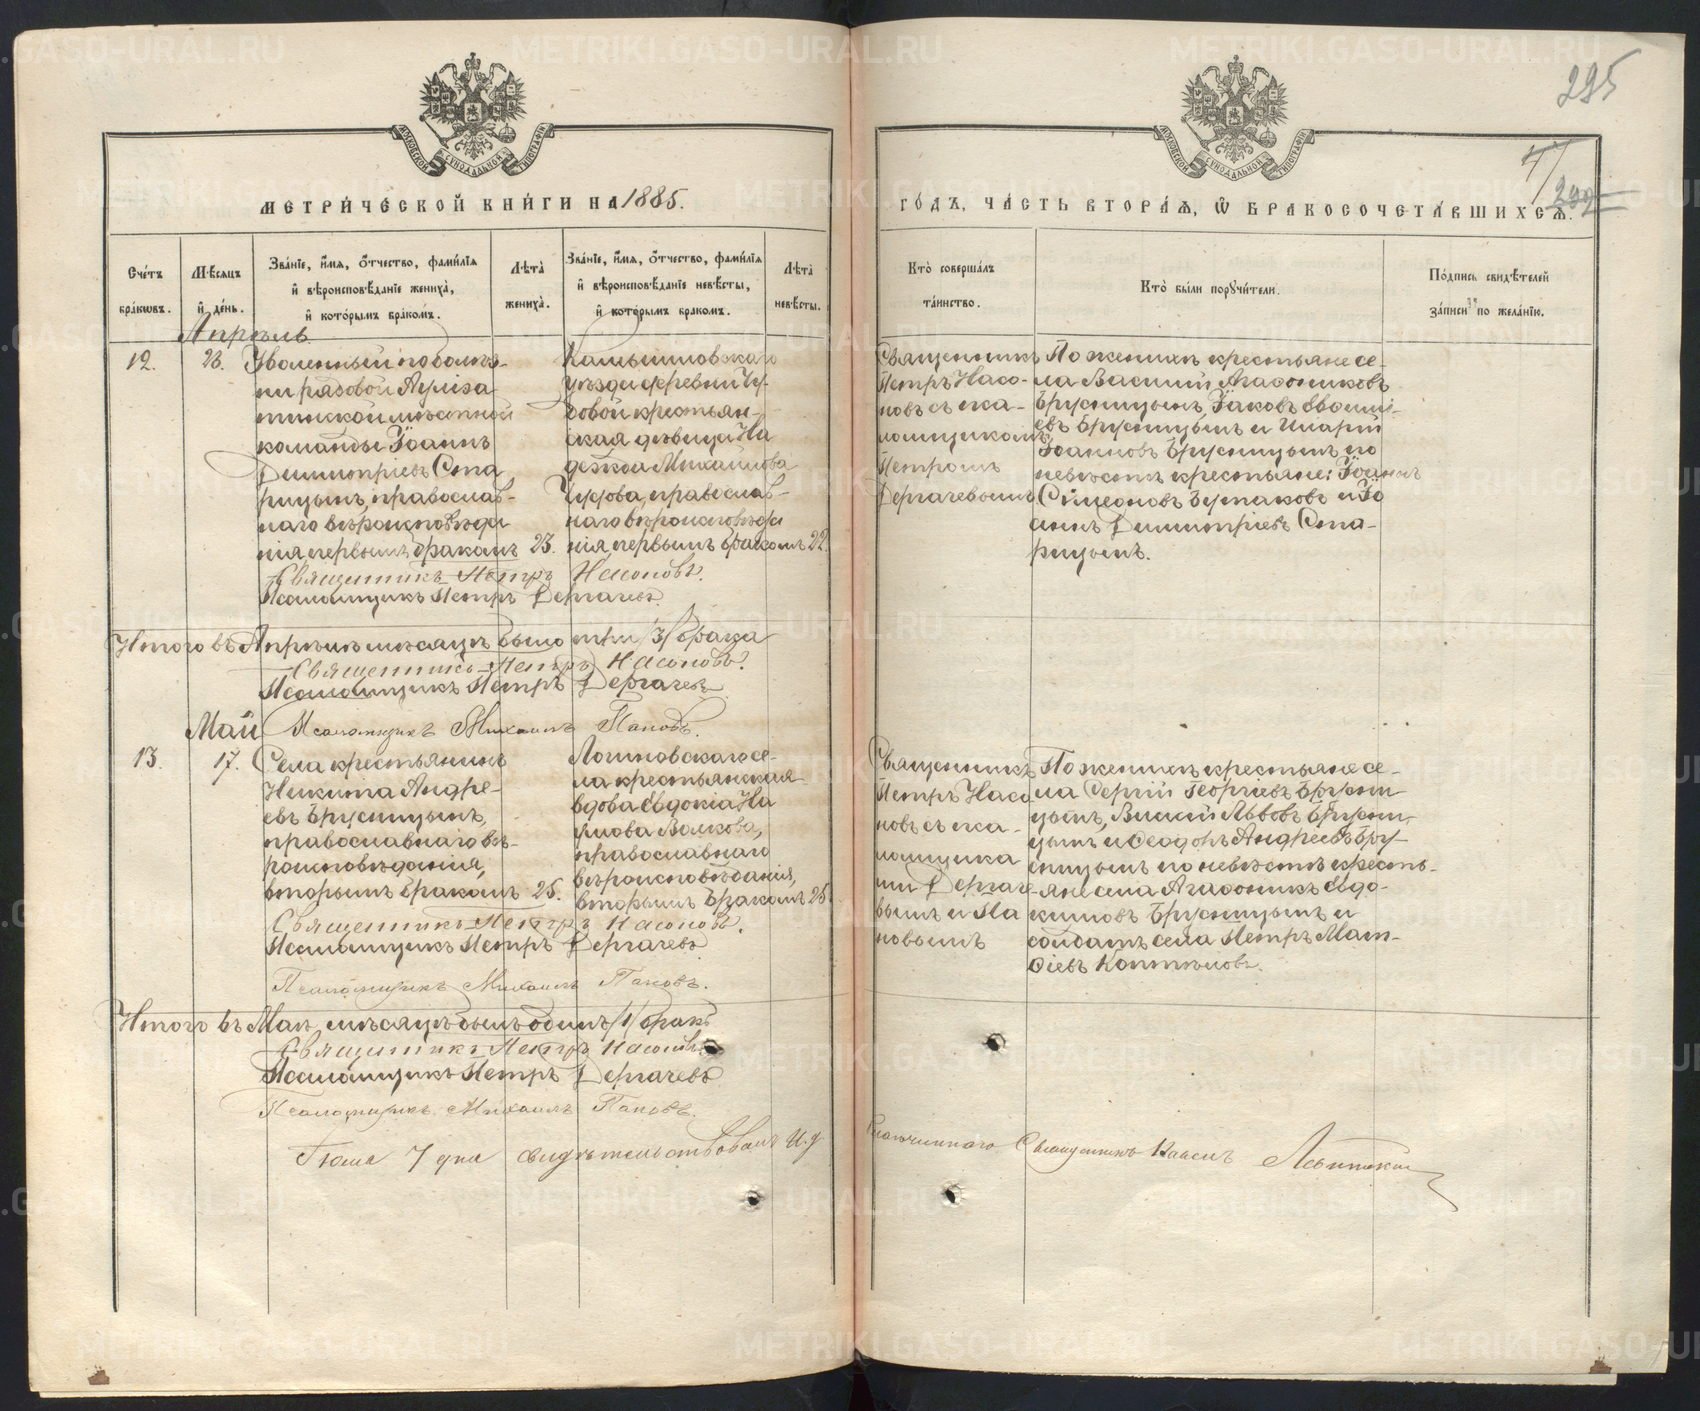 METRIKI.GASO-URAL.RU
295
47
292
МОСКОВСКОЙ СѴНОДАЛЬНОЙ ТИПОГРАФІИ
МОСКОВСКОЙ СѴНОДАЛЬНОЙ ТИПОГРАФІИ
МЕТРИ́ЧЕСКОЙ КНИ́ГИ НА 1885.
ГО́ДЪ, ЧА́СТЬ ВТОРА́Я, Ѡ҆ БРАКОСОЧЕТА́ВШИХСЯ.
Сче́тъ бра́кѡвъ.
Мѣ́сяцъ и҆ де́нь.
Зва́нїе, и҆́мя, ѻ҆́тчество, фами́лїя
и҆ вѣроисповѣ́данїе жениха̀,
и҆ кото́рымъ бра́комъ.
Лѣта̀ жениха̀.
Зва́нїе, и҆́мя, ѻ҆́тчество, фами́лїя
и҆ вѣроисповѣ́данїе невѣ́сты,
и҆ кото́рымъ бракомъ.
Лѣта̀ невѣ́сты.
Кто̀ соверша́лъ та́инство.
Кто̀ бы́ли порꙋчи́тели.
По́дпись свидѣ́телей
за́писи по жела́нїю.
Апрѣль
12.
26.
Уволенный по болѣз-
ни рядовой Аулiэа
тинской мѣстной
команды Іоаннъ
Димитріевъ Ста
рицынъ, православ-
наго вѣроисповѣда
нія первымъ бракомъ 23.
Камышловскаго
уѣзда деревни Чу-
довой крестьян-
ская дѣвица На
дежда Михайлова
Чудова, православ-
наго вѣроисповѣда
нія первымъ бракомъ 22.
Священникъ
Петръ Насо-
новъ съ пса-
ломщикомъ
Петромъ
Дергачевымъ
По женихѣ крестьяне се-
ла Василій Агафониковъ
Брусницынъ, Іаковъ
евъ Брусницынъ и Иларій
Іоанновъ Брусницынъ по
невѣстѣ крестьяне: Іоаннъ
Сѵмеоновъ Бурмаковъ и Іо
аннъ Димитріевъ Ста-
рицынъ.
Священникъ Петръ Насоновъ.
Псаломщикъ Петръ Дергачевъ
Итого въ Апрѣлѣ мѣсяцѣ было три /3/ брака
Священникъ Петръ Насоновъ.
Псаломщикъ Петръ Дергачевъ
Май
Псаломщикъ Михаилъ Пановъ.
13.
17.
Села крестьянинъ
Никита Андре-
евъ Брусницынъ,
православнаго вѣ-
роисповѣданія,
вторымъ бракомъ 25.
Логиновскаго се-
ла крестьянская
вдова Евдокія На
умова Волкова,
православнаго
вѣроисповѣданія,
вторымъ бракомъ 25.
Священникъ
Петръ Насо
новъ съ пса-
ломщика
ми Дергаче-
вымъ и Па
новымъ
По женихѣ крестьяне се-
ла Сергій Георгіевъ Брусни-
цынъ, Львовъ Брусни-
цынъ и Ѳеодоръ Андреевъ Бру-
сницынъ по невѣстѣ кресть-
яне села Агафоникъ Евдо-
кимовъ Брусницынъ и
солдатъ села Петръ Мат-
ѳіевъ Коптѣловъ.
Священникъ Петръ Насоновъ.
Псаломщикъ Петръ Дергачевъ
Псаломщикъ Михаилъ Пановъ.
Итого въ Маѣ мѣсяцѣ былъ одинъ /1/ бракъ
Священникъ Петръ Насоновъ
Псаломщикъ Петръ Дергачевъ
Псаломщикъ Михаилъ Пановъ.
Іюля 7 дня свидѣтельствовалъ И. д. Благочиннаго Священникъ